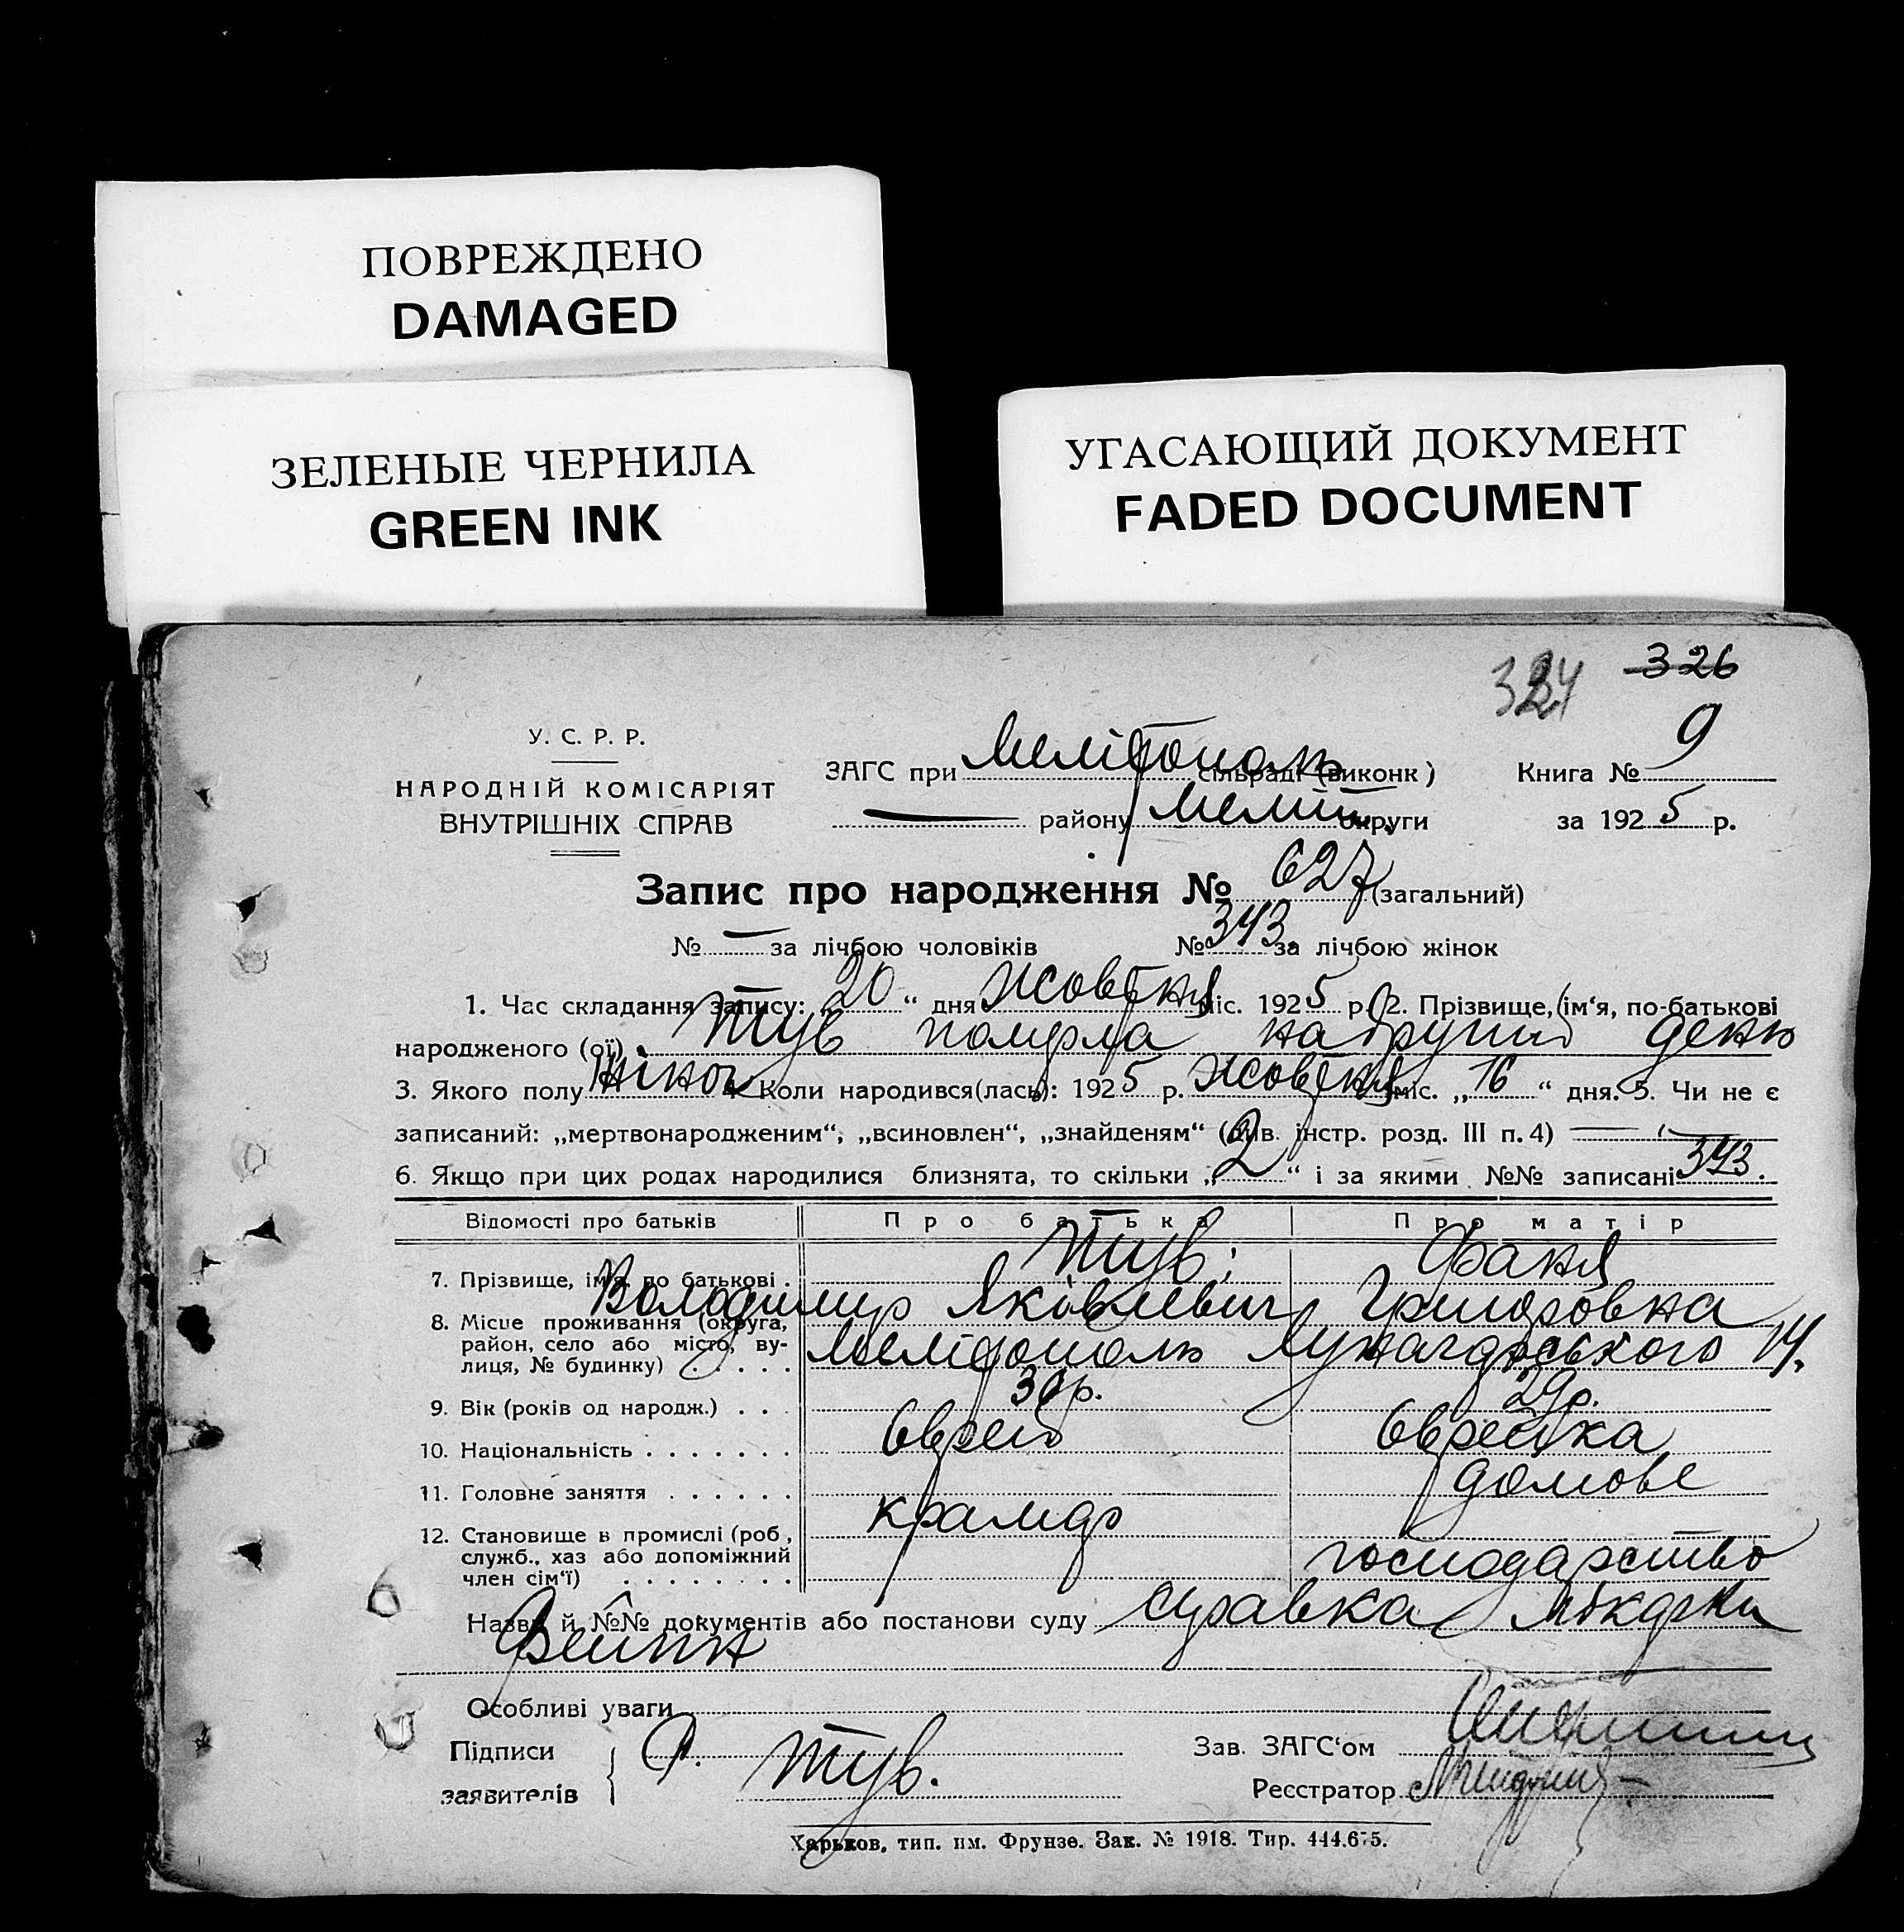 ПОВРЕЖДЕНО
DAMAGED
ЗЕЛЕНЫЕ ЧЕРНИЛА
GREEN INK
УГАСАЮЩИЙ ДОКУМЕНТ
FADED DOCUMENT
324 326
У. С. Р. Р.
НАРОДНІЙ КОМІСАРІЯТ
ВНУТРІШНІХ СПРАВ
ЗАГС при Мелітополь сільраді (виконк) Книга № 9
— району Меліт. округи за 1925 р.
Запис про народження № 627 (загальний)
№ — за лічбою чоловіків № 343 за лічбою жінок
1. Час складання запису: 20 “ дня Жовтня міс. 1925 р. 2. Прізвище, ім‘я, по-батькові
народженого (ої) Тув померла на другий день
3. Якого полу жіноч 4. Коли народився(лась): 1925 р. Жовтня міс. „16 “ дня. 5. Чи не є
записаний: „мертвонародженим“, „всиновлен“, „знайденям“ (див. інстр. розд. III п. 4) —
6. Якщо при цих родах народилися близнята, то скільки „2 “ і за якими №№ записані 343.
Відомості про батьків Про батька Про матір
7. Прізвище, ім‘я, по батькові . Тув; Фаня
Володимир Яківлевич Григоровна
8. Місце проживання (округа, район, село або місто, вулиця, № будинку) . . . . . Мелітополь Луначарського 14.
9. Вік (років од народж.) . . . 30 р. 29 р.
10. Національність . . . . . . . Єврей Єврейка
11. Головне заняття . . . . . . крамар домове
12. Становище в промислі (роб., служб., хаз або допоміжний член сім‘ї) . . . . . . . . господарство
Назви й №№ документів або постанови суду справка лікарки
Фейгин
Особливі уваги
Підписи заявителів Тув. Зав. ЗАГС‘ом
Реєстратор
Харьков, тип. им. Фрунзе. Зак. № 1918. Тир. 444.675.